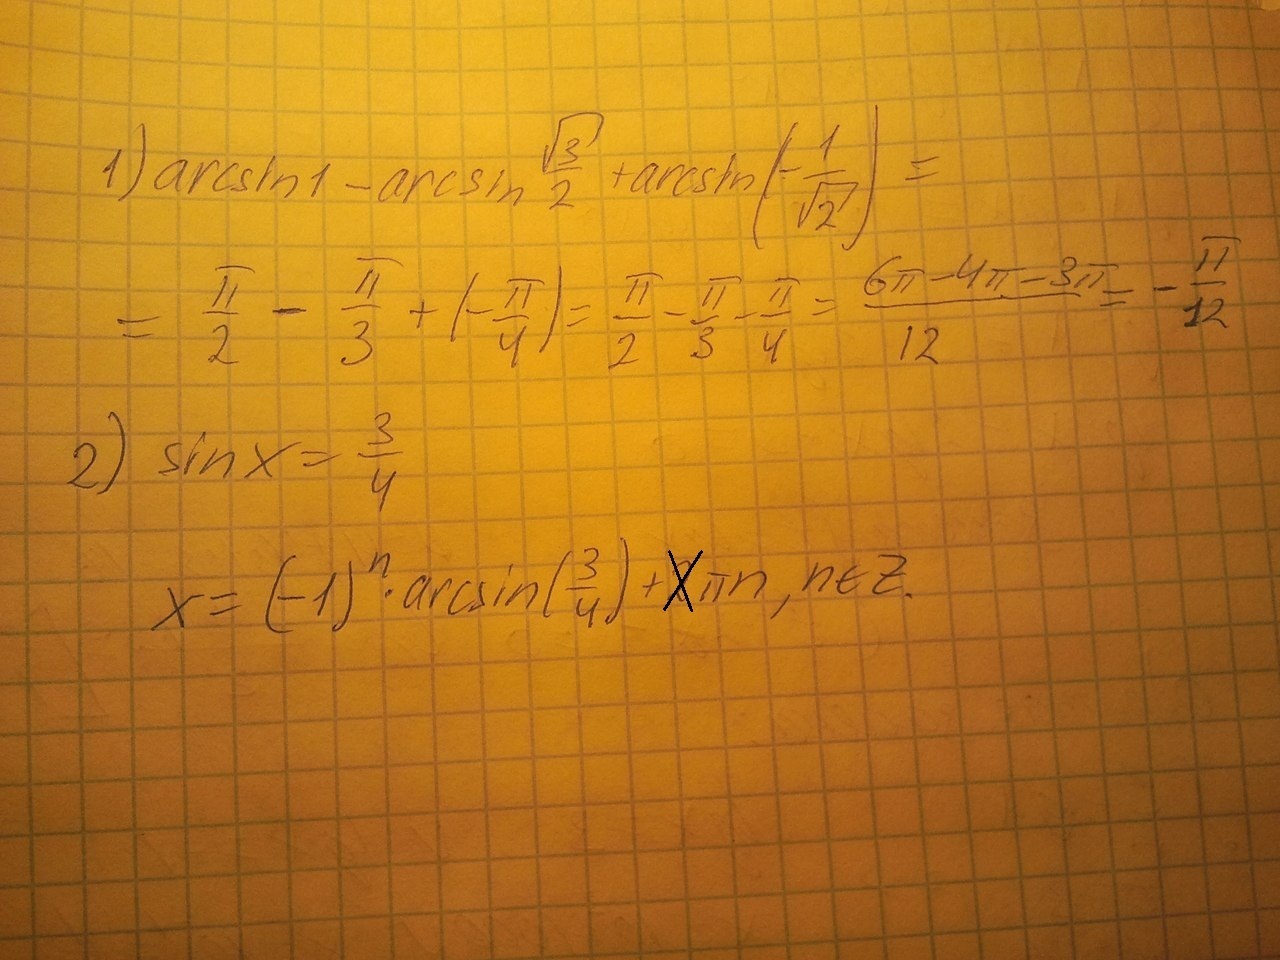 1) arcsin1 - arcsin √3/2 + arcsin(-1/√2) =
= π/2 - π/3 + (-π/4) = π/2 - π/3 - π/4 = (6π-4π-3π)/12 = -π/12
2) sinx = 3/4
x = (-1)^n · arcsin(3/4) + πn, n∈Z.